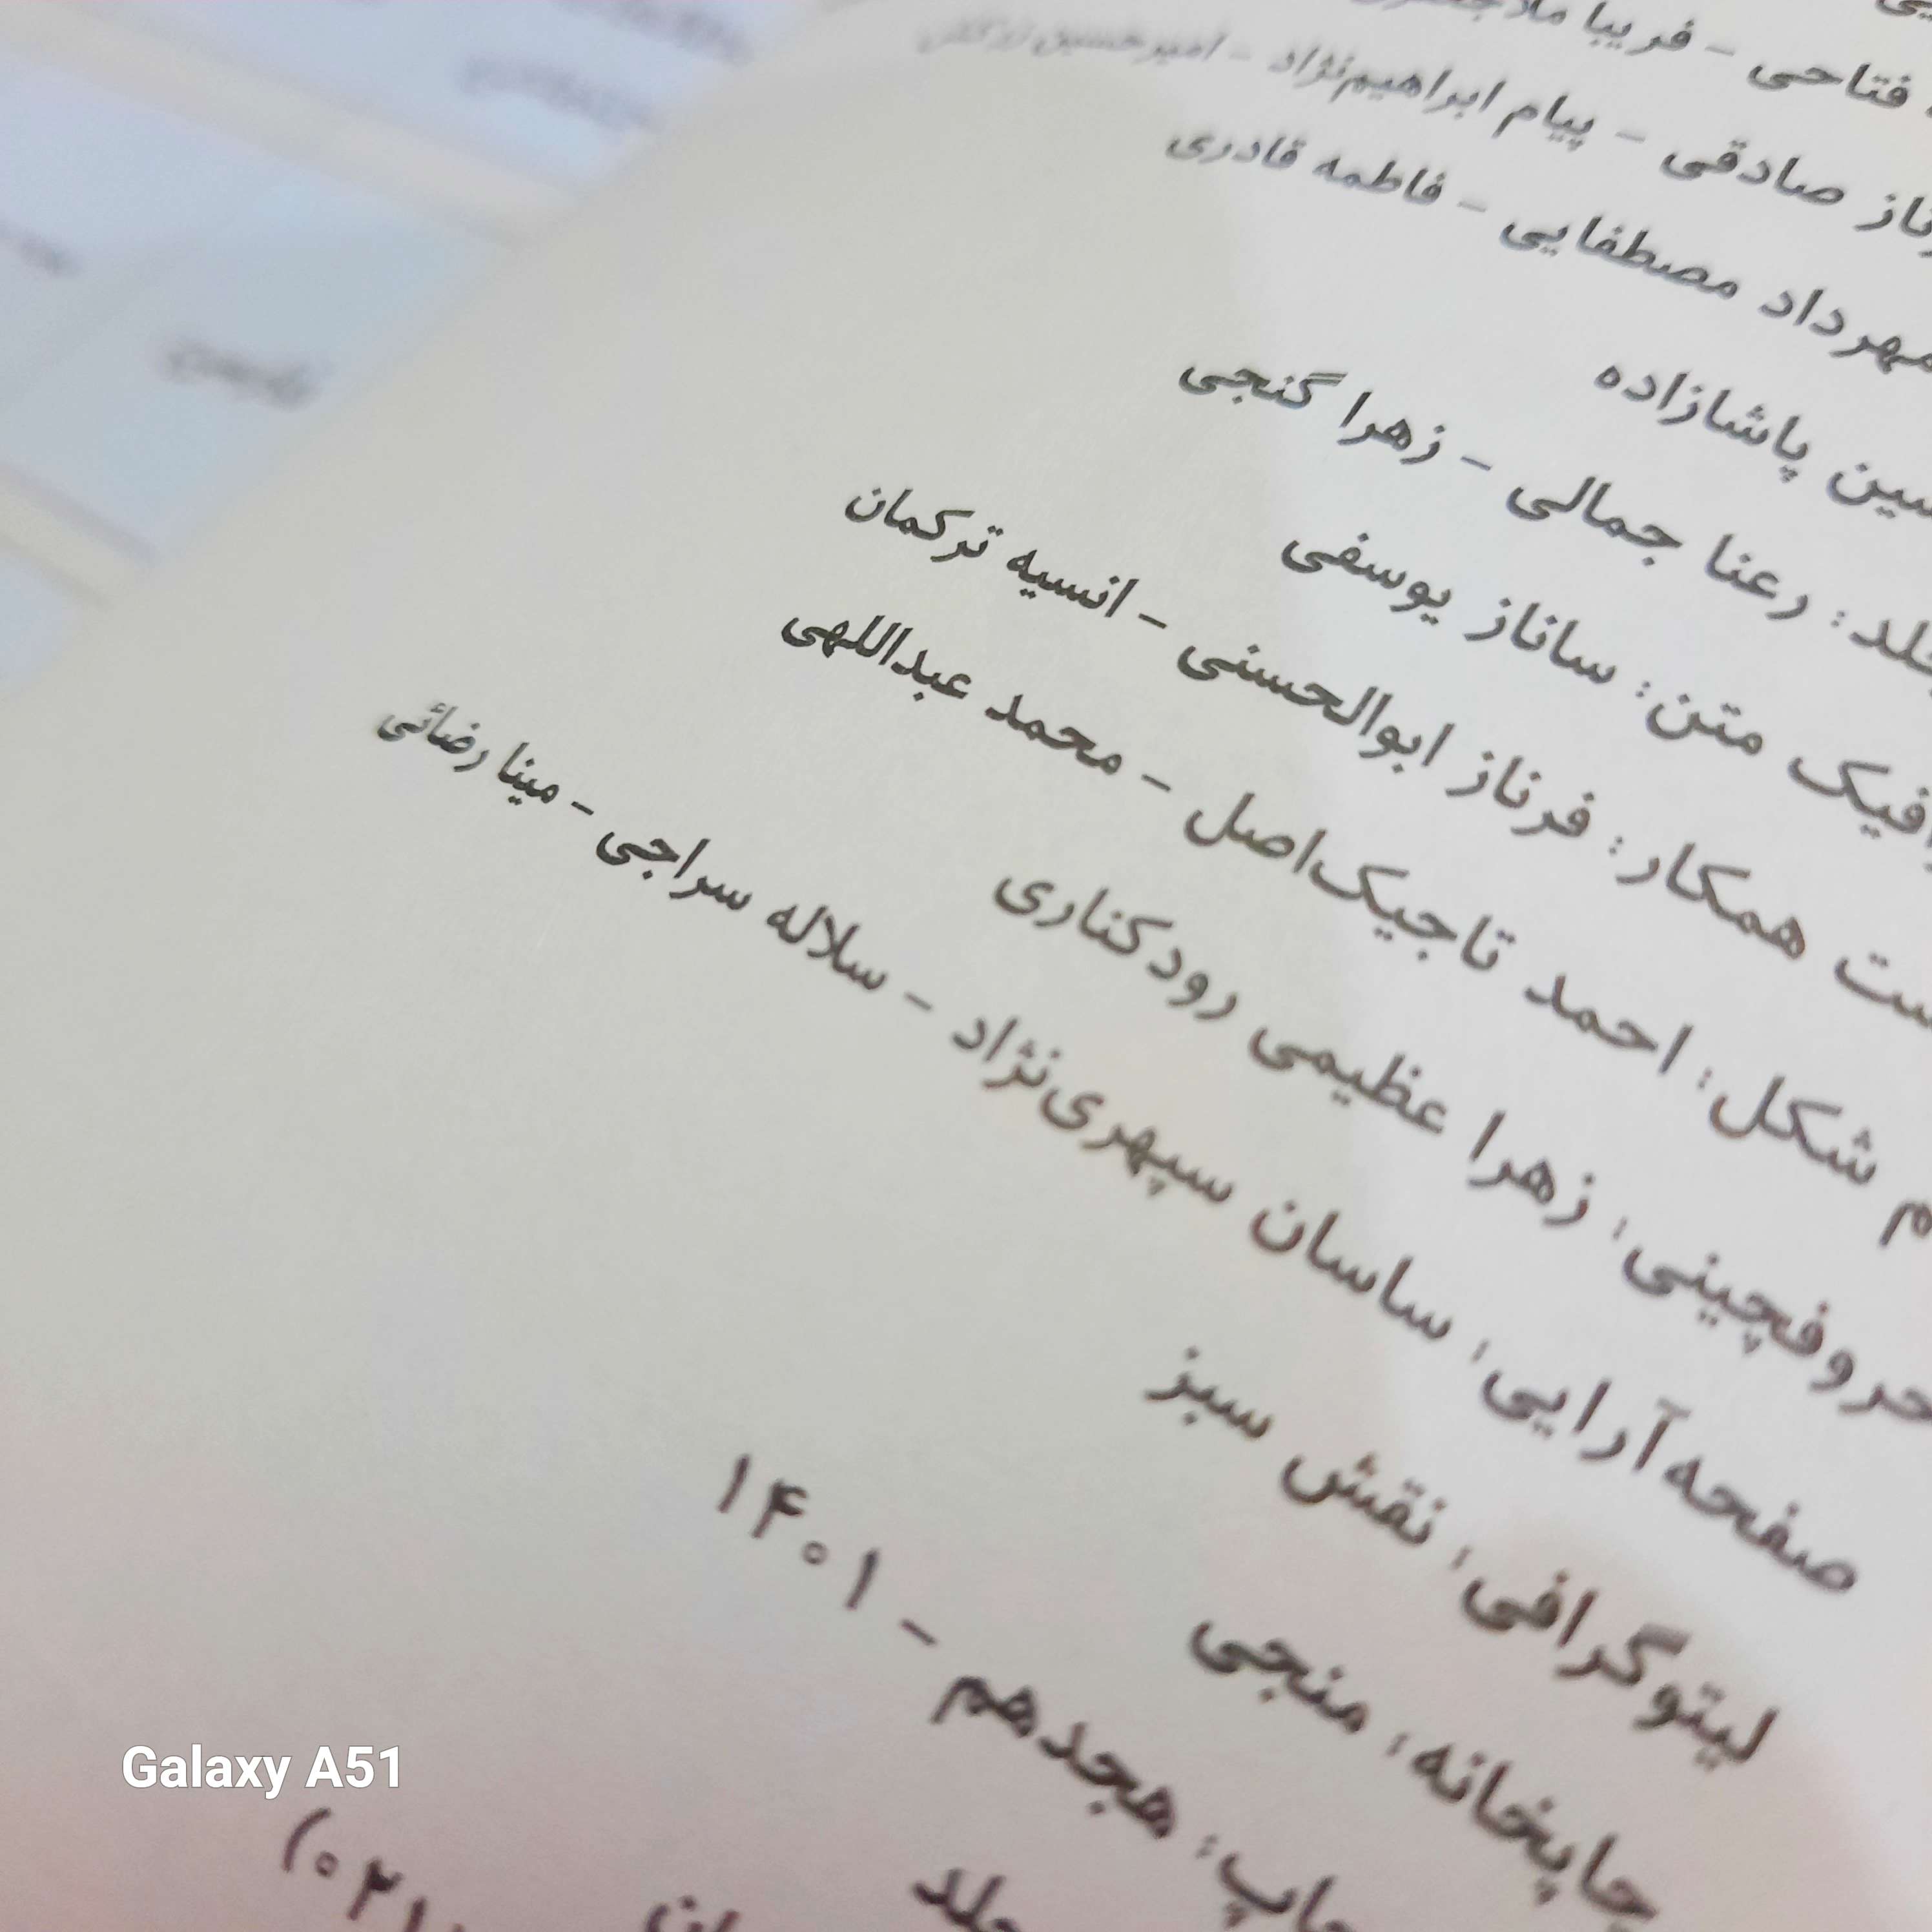 فتاحی - فریبا
صادقی - پیام ابراهیم‌نژاد - امیرحسین
مهرداد مصطفایی - فاطمه قادری
پاشازاده
جلد: رعنا جمالی - زهرا گنجی
متن: ساناز یوسفی
همکار: فرناز ابوالحسنی - انسیه ترکمان
شکل: احمد تاجیک‌اصل - محمد عبداللهی
حروفچینی: زهرا عظیمی رودکناری
صفحه‌آرایی: ساسان سپهری‌نژاد - سلاله سراجی - مینا رضائی
لیتوگرافی: نقش سبز
چاپخانه: منجی
چاپ: هجدهم - ۱۴۰۱
جلد
Galaxy A51